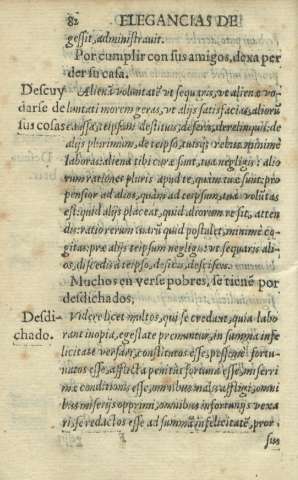 82 ELEGANCIAS DE
gessit, administrauit.
Por cumplir con sus amigos, dexa per
der su casa.
Descuy
darse de
sus cosas
Alienã voluntatē vt sequaris, vt alienæ vo
luntati morem geras, vt alijs satisfacias, aliorũ
caussa, teipsum destituis, deseris, derelinquis: de
alijs plurimum, de teipso, tuisq; rebus minimè
laboras: aliena tibi curæ sunt, tua negligis: alio
rum rationes pluris apud te, quàm tuæ sunt: pro
pensior ad alios, quàm ad teipsum, tua volũtas
est: quid alijs placeat, quid aliorum re sit, atten
dis: rationem tuarũ quid postulet, minimè co
gitas: præ alijs teipsum negligis: vt sequaris ali-
os, discedis à teipso, desciscis.
Muchos en verse pobres, se tienē por
desdichados,
Desdi-
chado.
Videre licet multos, qui se credant, quia labo
rant inopia, egestate premuntur, in summa infe
licitate versari, constitutos esse, pessimè fortu-
natos esse, afflicta penitus fortuna esse, miserri
mæ conditionis esse, omnibus malis affligi, omni
bus miserijs opprimi, omnibus infortunijs vexa
ri, se redactos esse ad summã infelicitatē, pror-
sus